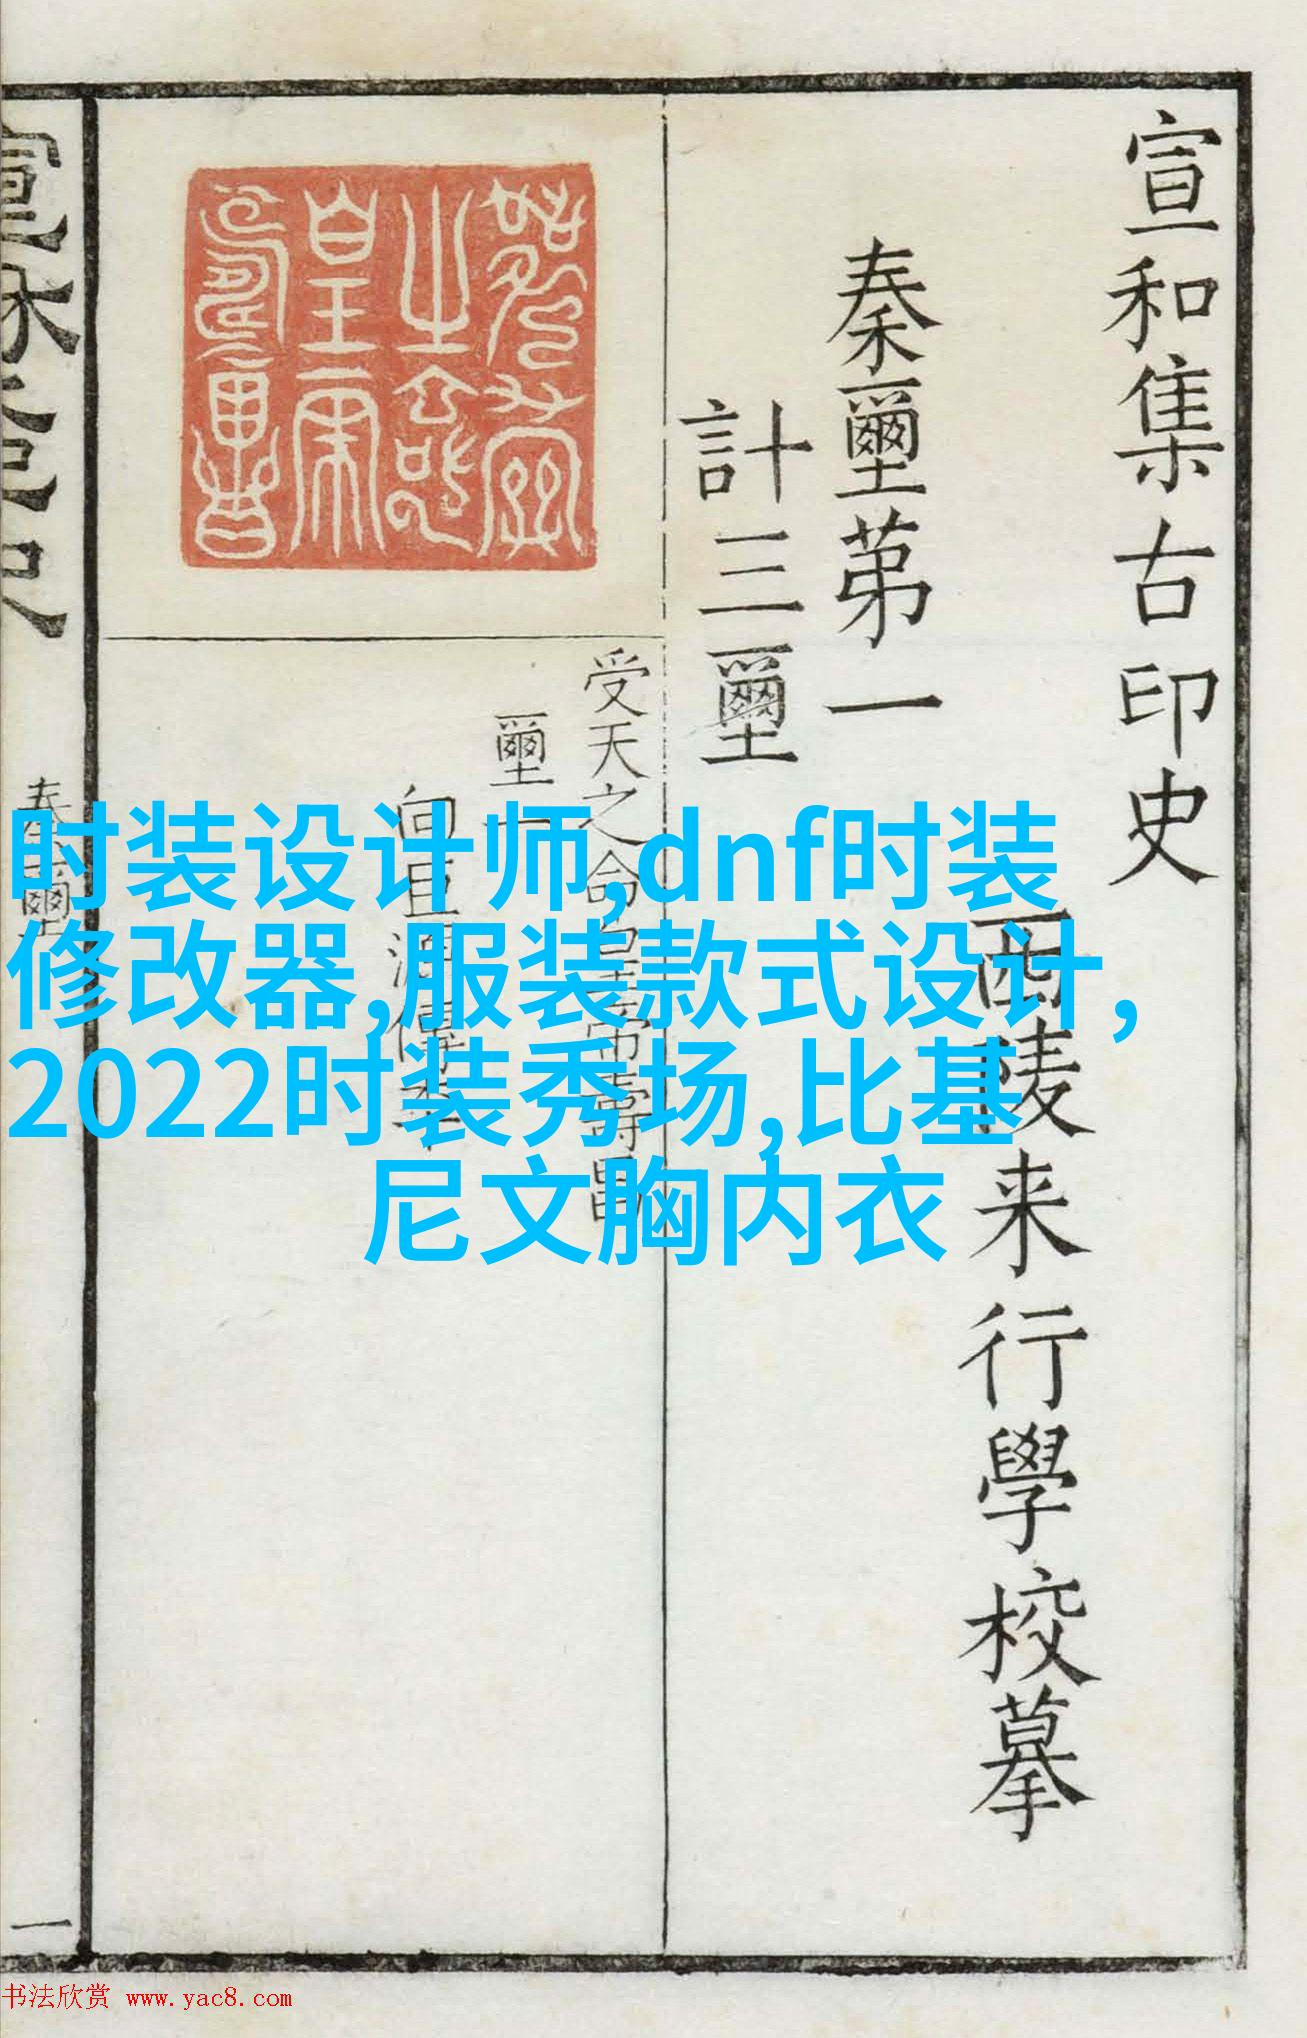 宣和集古印史
西陵来行學校摹
秦璽苐一
計三璽
受天之命皇帝壽昌
璽一
向巨源傳本
秦璽
一
时装设计师,dnf时装
修改器,服装款式设计，
2022时装秀场,比基
尼文胸内衣
书法欣赏 www.yac8.com